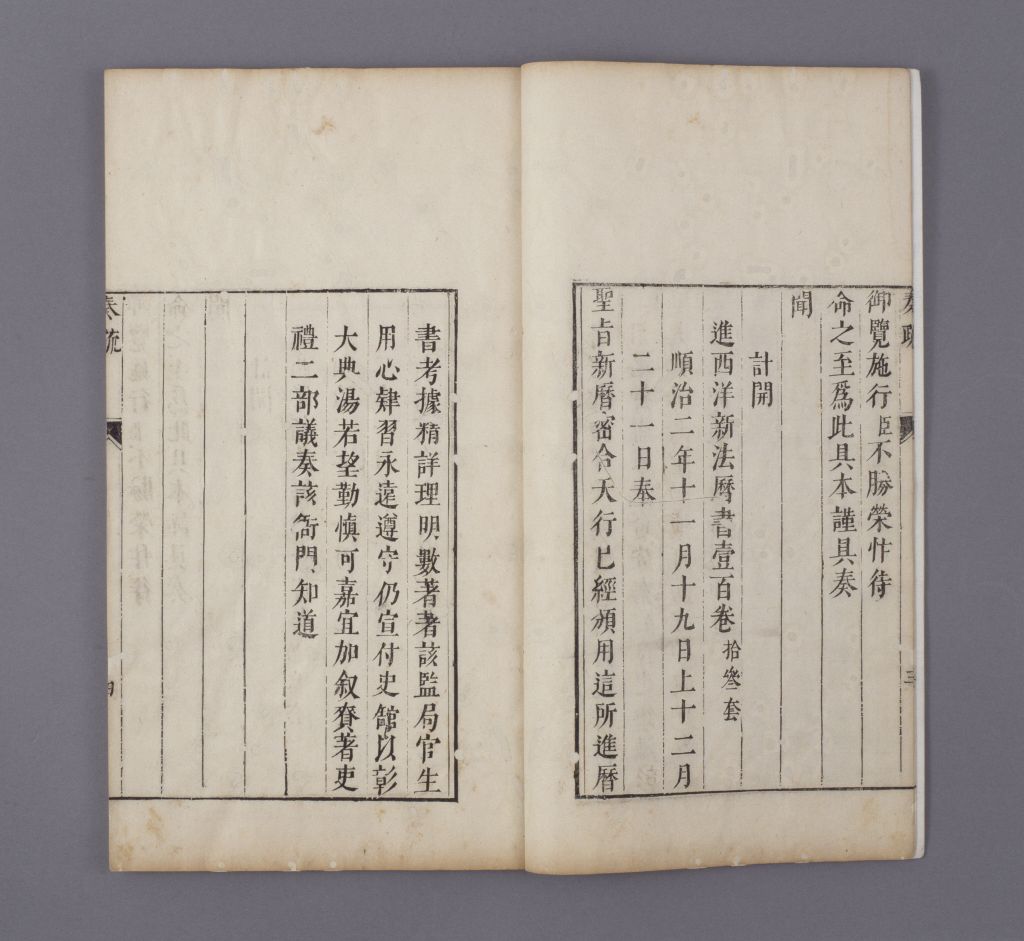 奏疏
三
御覽施行臣不勝榮忭待
命之至爲此具本謹具奏
聞
計開
進西洋新法曆書壹百卷 拾叅套
順治二年十一月十九日上十二月
二十一日奉
聖旨新曆密合天行已經頒用這所進曆
書考據精詳理明數著著該監局官生
用心肄習永遠遵守仍宣付史館以彰
大典湯若望勤慎可嘉宜加叙賚著吏
禮二部議奏該衙門知道
奏疏
四